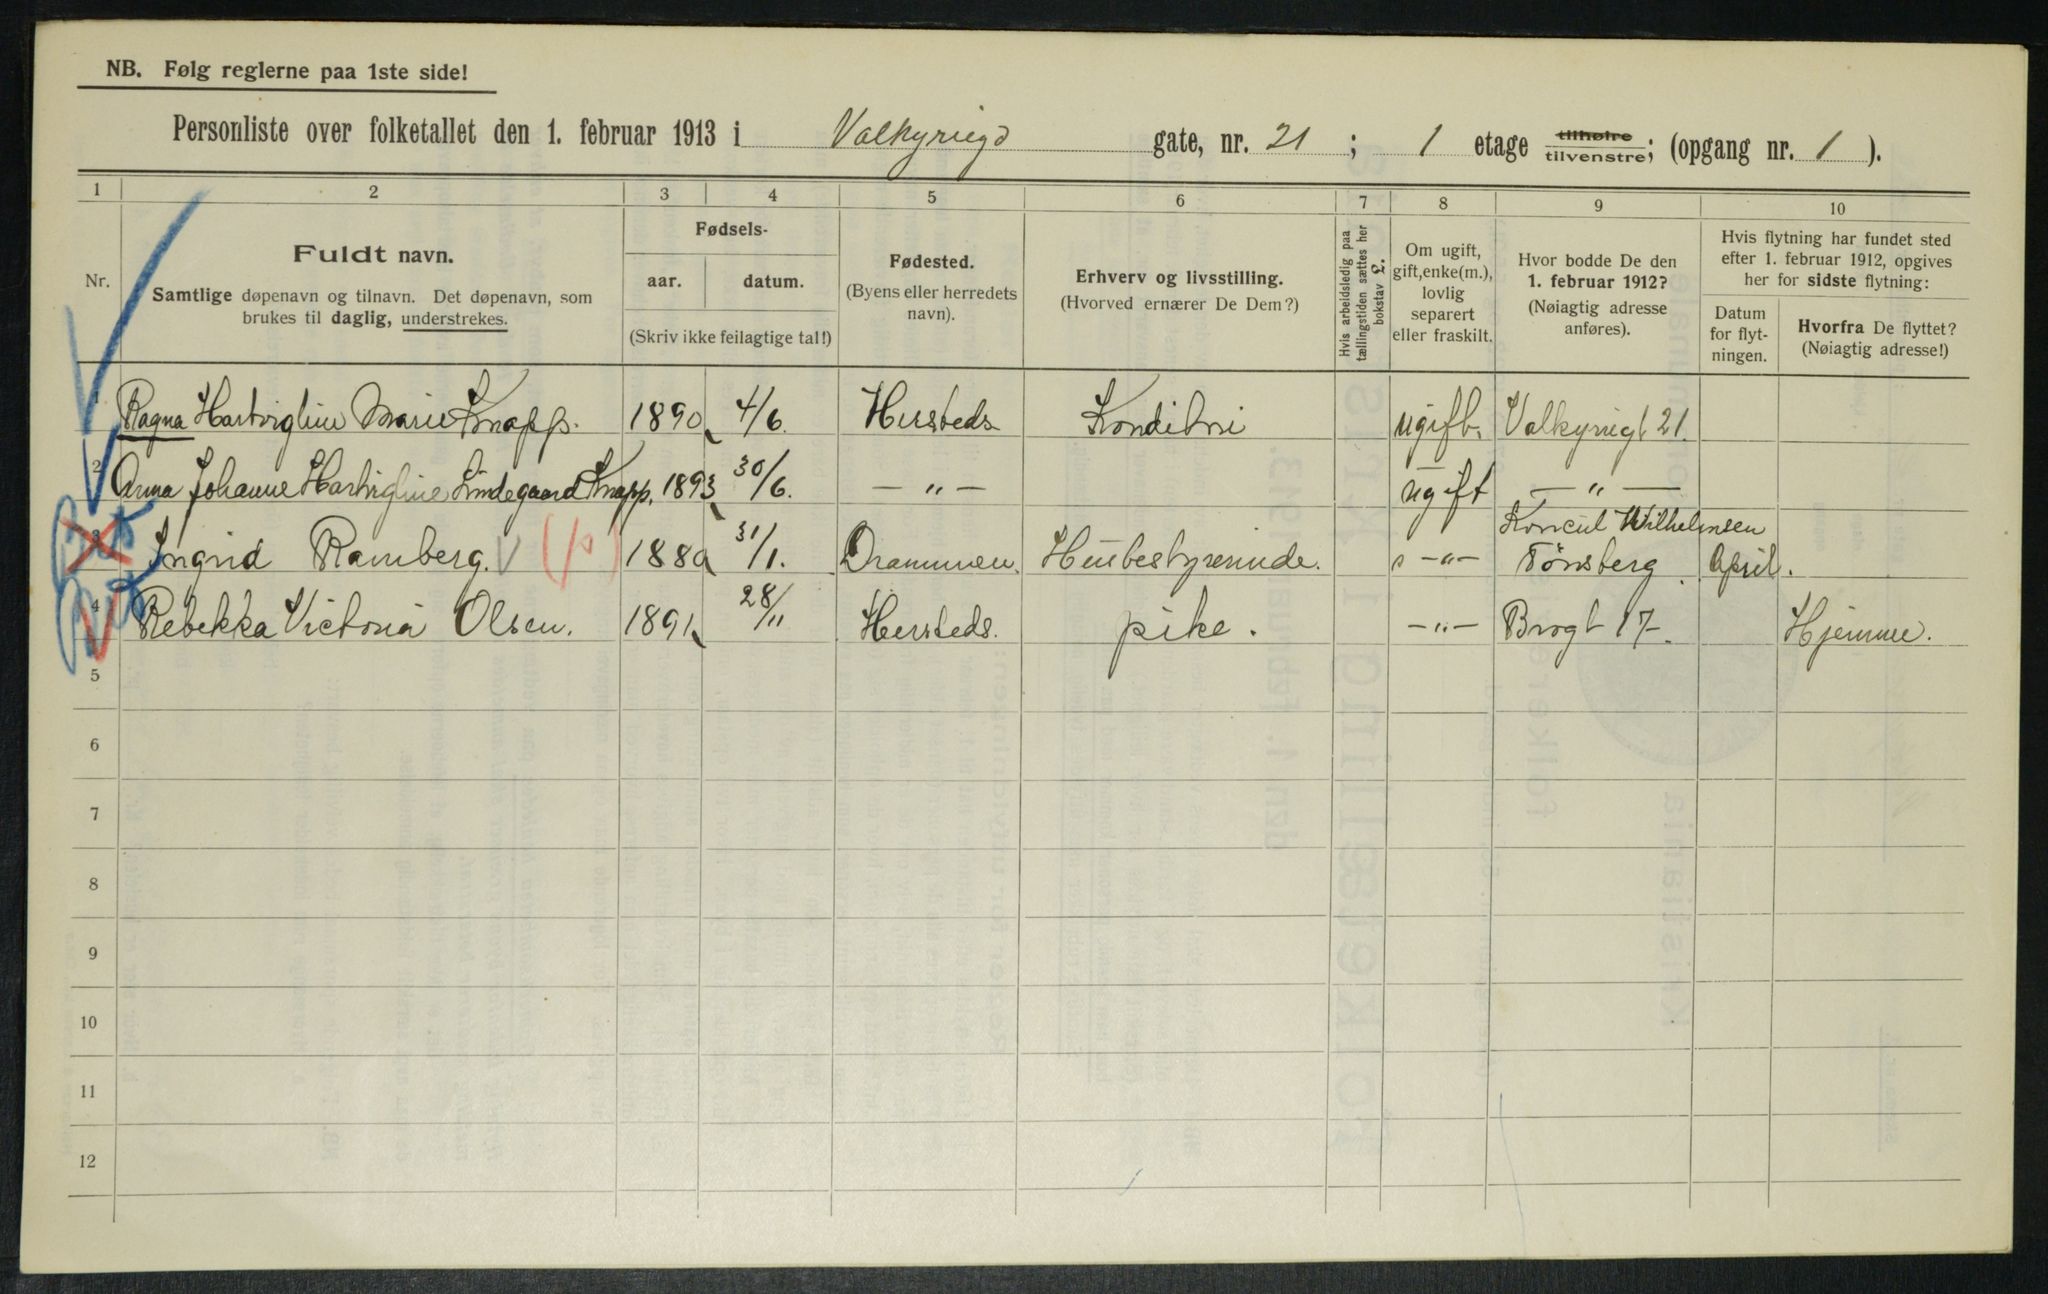 NB. Følg reglerne paa 1ste side!
Personliste over folketallet den 1. februar 1913 i Valkyriegd gate, nr. 21 ; 1 etage tilhøire tilvenstre; (opgang nr. 1 ).
1 2 3 4 5 6 7 8 9 10
Nr.
Fuldt navn.
Samtlige døpenavn og tilnavn. Det døpenavn, som
brukes til daglig, understrekes.
Fødsels-
aar. datum.
(Skriv ikke feilagtige tal!)
Fødested.
(Byens eller herredets
navn).
Erhverv og livsstilling.
(Hvorved ernærer De Dem?)
Hvis arbeidsledig paa
tællingstiden sættes her
bokstav L.
Om ugift,
gift, enke(m.),
lovlig
separert
eller fraskilt.
Hvor bodde De den
1. februar 1912?
(Nøiagtig adresse
anføres).
Hvis flytning har fundet sted
efter 1. februar 1912, opgives
her for sidste flytning:
Datum
for flyt-
ningen.
Hvorfra De flyttet?
(Nøiagtig adresse!)
1 Ragna Hartvigline Marie Knapp. 1890 4/6. Hersteds Konditori ugift. Valkyriegt. 21.
2 Anna Johanne Hartvigline Lindegaard Knapp. 1893 30/6. — „ — ugift — „ —
3 Ingrid Ramberg. (10) 1880 31/1. Drammen. Husbestyrerinde. — „ — Konsul Wilhelmsen Tönsberg. April.
4 Rebekka Victoria Olsen. 1891 28/11 Hersteds. pike. — „ — Brogt 17. Hjemme.
5
6
7
8
9
10
11
12